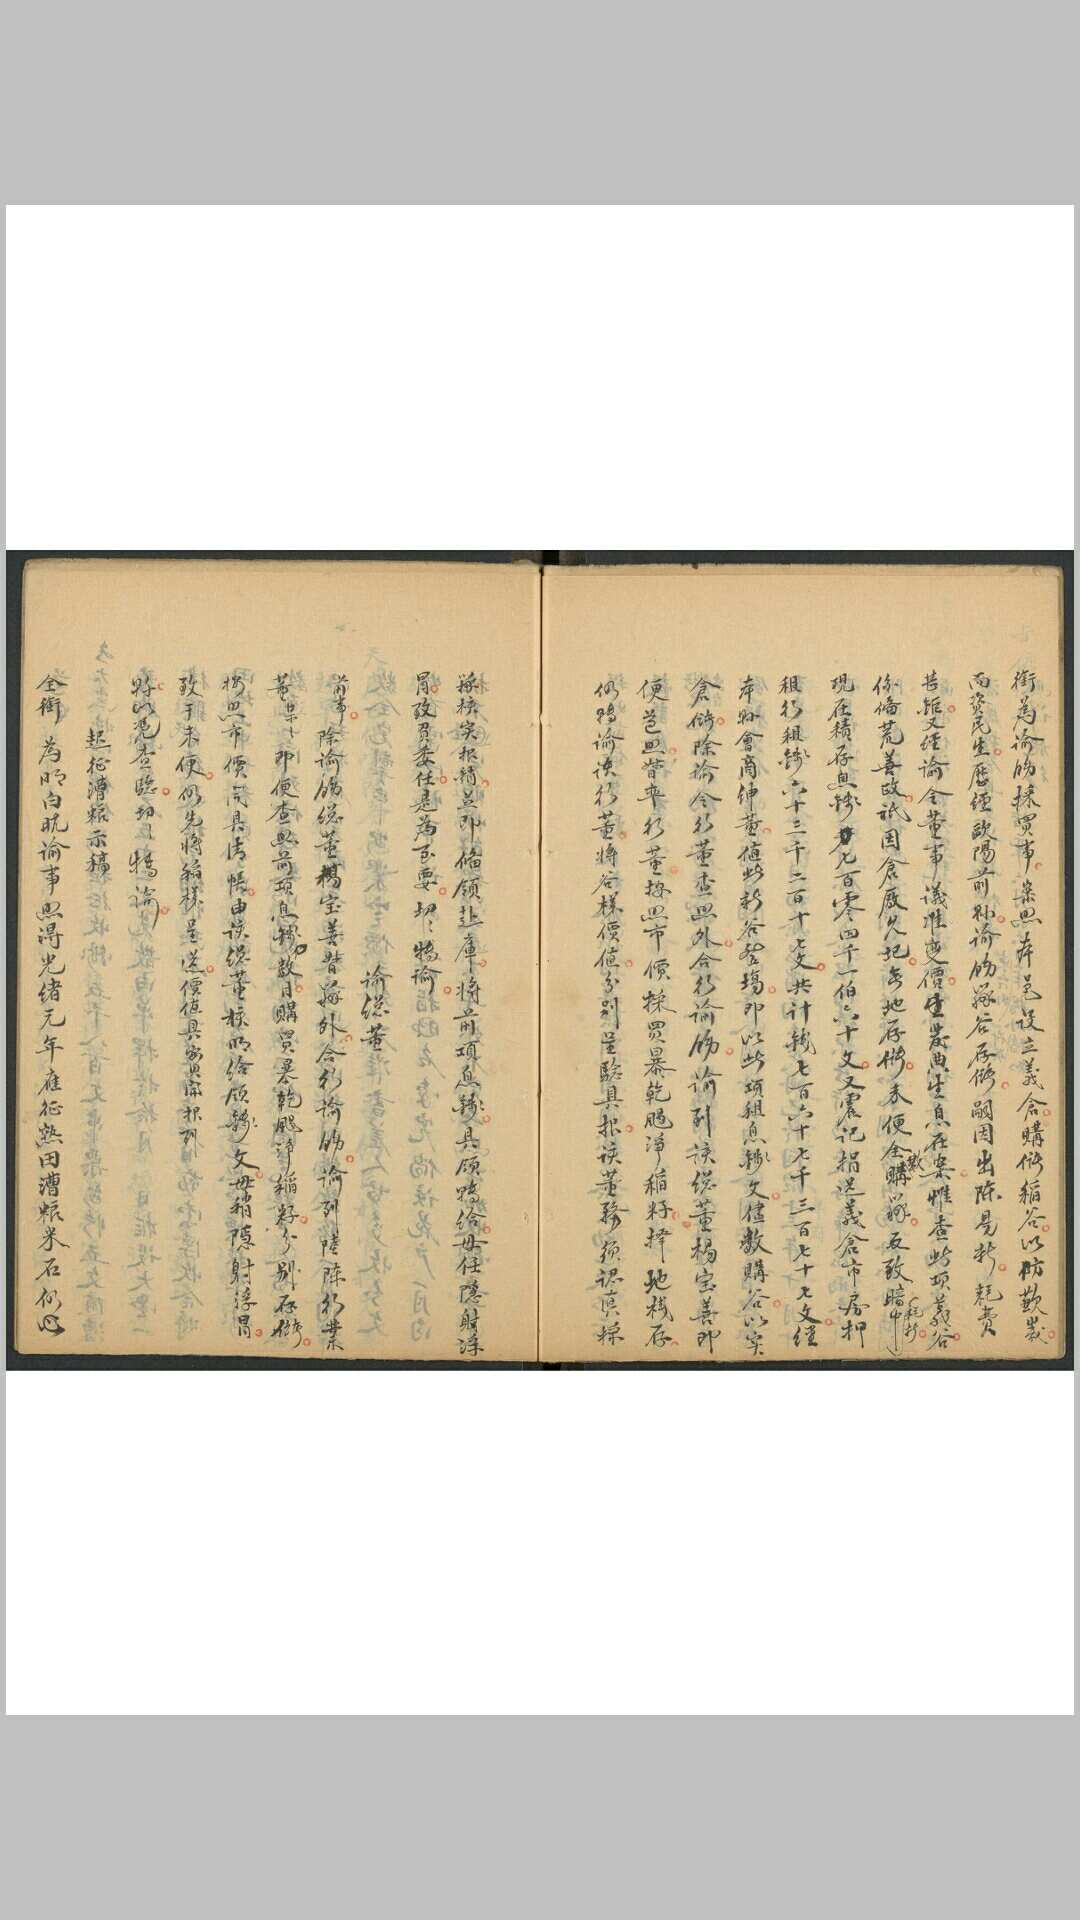 衔為諭飭採買事案照本邑設立義倉購儲稲谷以防歉歲
而資民生歷經歐陽前縣諭飭採谷存儲嗣因出陳易新耗費
甚鉅又經諭令董事議准變價生息在案惟查此項義谷
係備荒善政祇因倉厫兌圯無地存儲未便全數購採反致暗中耗折
現在積存息錢七百零四千一伯六十文又震記捐送義倉市房押
租行租錢六十三千二百十七文共計錢七百六十七千三百七十七文經
本縣會商紳董值此新谷登場即以此項租息錢文儘數購谷以实
倉儲除諭令行董查照外合行諭飭諭到該総董楊宝善即
便邀照昔年行董按照市價採買暴乾颺淨稲籽擇地棧存
仍將諭該行董將谷樣價值分别呈驗具报該董務須認真採
採核实报銷並即俻領赴庫將前項息錢具領購給毋任隱射浮
冒致負委任是為至要切切特諭
諭総董
前事除諭飭総董楊宝善督採外合行諭飭諭到陸陈行業
董 即便查照前項息錢數目購買暴乾颺淨稲籽分别存儲
按照市價開具清帳由该総董核明給領錢文毋稍隱射浮冒
致于未便仍先將稲樣呈送價值具案具稟报列
縣以憑查驗切切特諭
起征漕粮示稿
全衔 為明白晓諭事照得光緒元年應征熟田漕粮米石仍